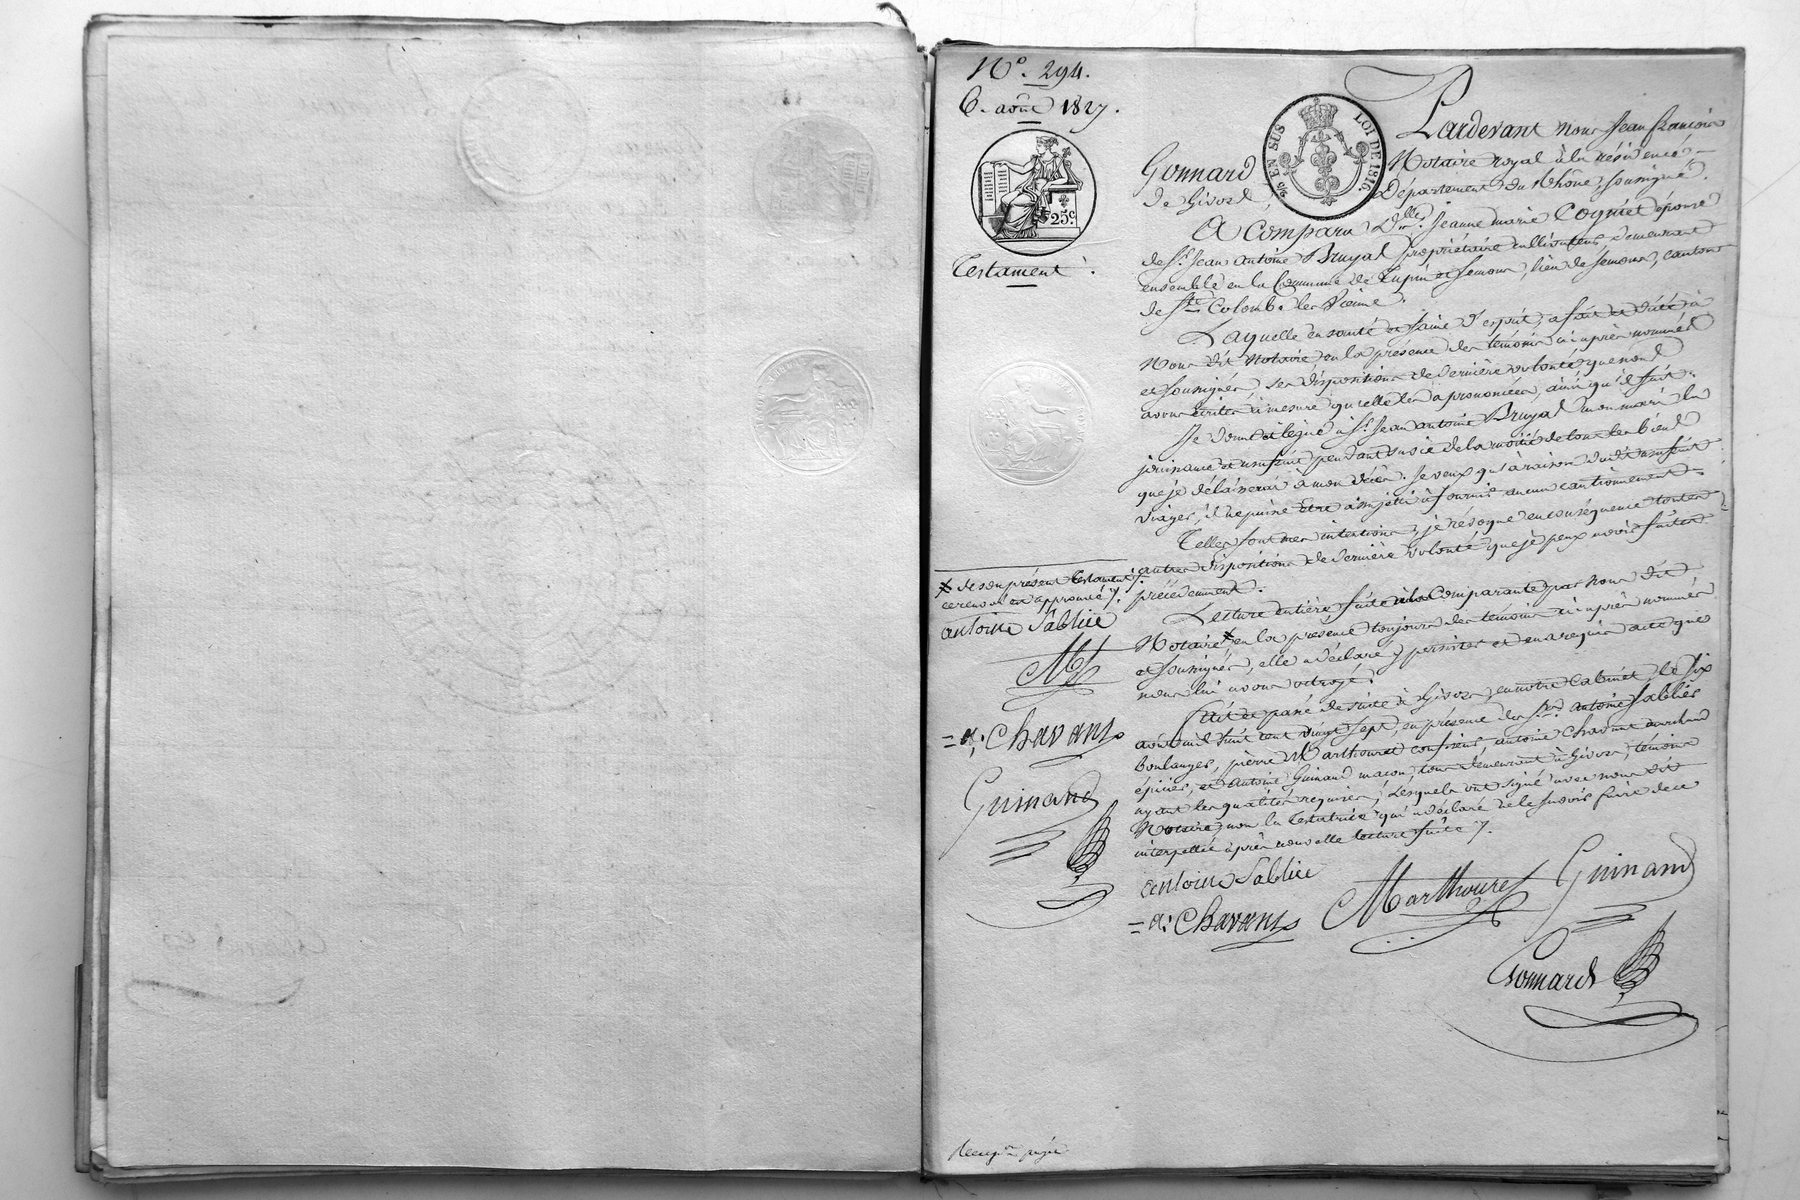 N.° 294.
6. août 1827.
25.c
EN SUS
LOI DE 1816.
Testament.
Pardevant nous Jean françois
Gonnard Notaire royal à la résidence
de Givors, Département du Rhône, soussigné.
A Comparu D.lle Jeanne marie Cogniet épouse
de S.r Jean antoine Bruyal propriétaire cultivateur, demeurant
ensemble en la Commune de Tupin et Semons, lieu de Semons, canton
de Ste Colombe les Vienne.
Laquelle en santé et saine d'esprit, a fait et dicté à
Nous dit Notaire en la présence des témoins ci après nommés
et soussignés, ses dispositions de dernière volonté que nous
avons écrites à mesure qu'elle les a prononcées, ainsi qu'il suit.
Je donne et lègue à S.r Jean antoine Bruyal mon mari la
jouissance et usufruit pendant sa vie de la moitié de tous les biens
que je délaisserai à mon décès. Je veux qu'à raison dudit usufruit
viager, il ne puisse être assujetti à fournir aucun cautionnement.
Telles sont mes intentions, je révoque en conséquence toutes
autres dispositions de dernière volonté que je peux avoir faites
précédemment.
Lecture entière faite à la Comparante par nous dit
Notaire, en la présence toujours des témoins ci après nommés
et soussignés, elle a déclaré y persister et en a requis acte que
nous lui avons octroyé.
Fait et passé de suite à Givors, en notre Cabinet, le six
août mil huit cent vingt sept, en présence des S.rs antoine Sablier
boulanger, pierre Marthouret confiseur, antoine Chavant marchand
épicier, et antoine Guinand maçon, tous demeurant à Givors, témoins
ayant les qualités requises, lesquels ont signé avec nous dit
Notaire, non la testatrice qui a déclaré ne le savoir faire de ce
interpellée après nouvelle lecture faite ./.
de son présent testament
ce renvoi est approuvé ./.
antoine Sablié
=a: Chavant
Guinand
antoine Sablié
Marthouret
Guinand
=a: Chavant
Gonnard